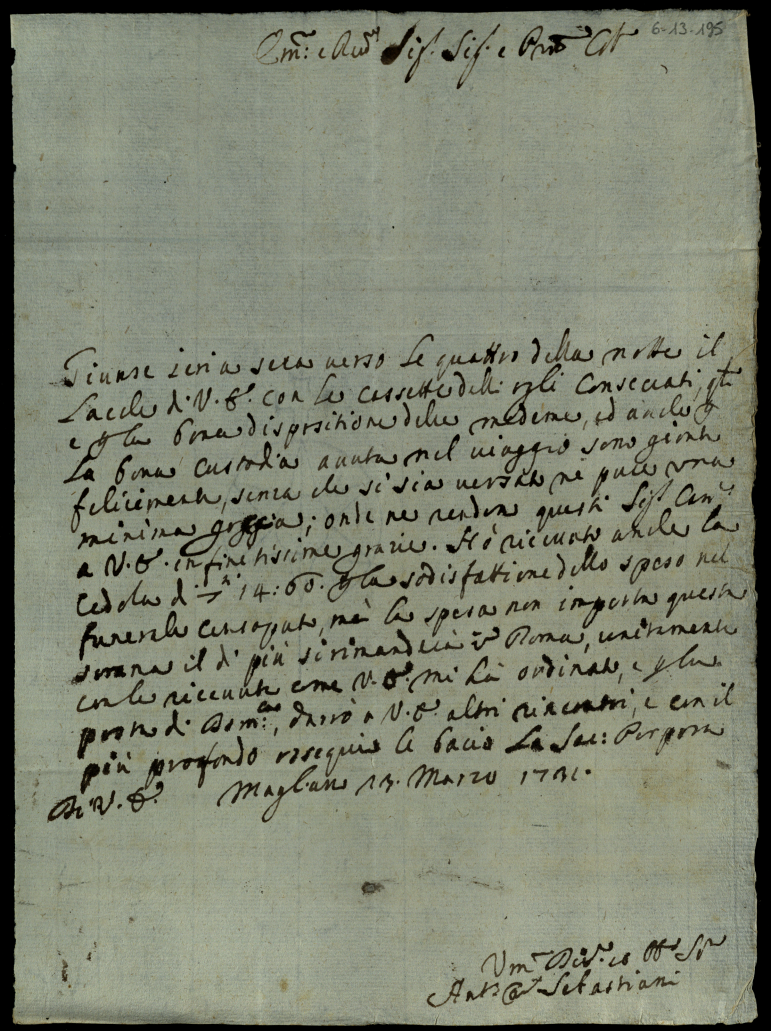 6-13-195
Em.ᵒ e Rev.ᵐᵒ Sig.ʳ Sig.ʳ e Pr͞on Col.ᵐᵒ
Giunse ieri a sera verso le quattro della notte il
di V. E. con le cassette delli ogli Consecrati,
e p la bona dispositione delle medeme, ed anche p
La bona custodia avuta nel viaggio sono gionte
felicemente, senza che si sia versato ne pure una
minima goccia; onde ne rendon questi Sig.ʳⁱ Can.ᶜⁱ
a V. E. infinitissime grazie. Hò ricevuto anche la
Cedola di 14:60. p la sodisfattione dello speso nel
funerale, mà la spesa non importa questa
somma il di più si rimanderà in Roma, unitamente
con le ricevute come V. E. mi hà ordinato, e p la
posta di darrò a V. E. altri riscontri, e con il
più profondo ossequio le bacio La Sac: Porpora
Di V. E. Magliano 13. Marzo 1731.
Um.ᵒ Dev.ᵒ ed Obb.ᵒ Se.ʳᵉ
Ant.ᵒ Sebastiani